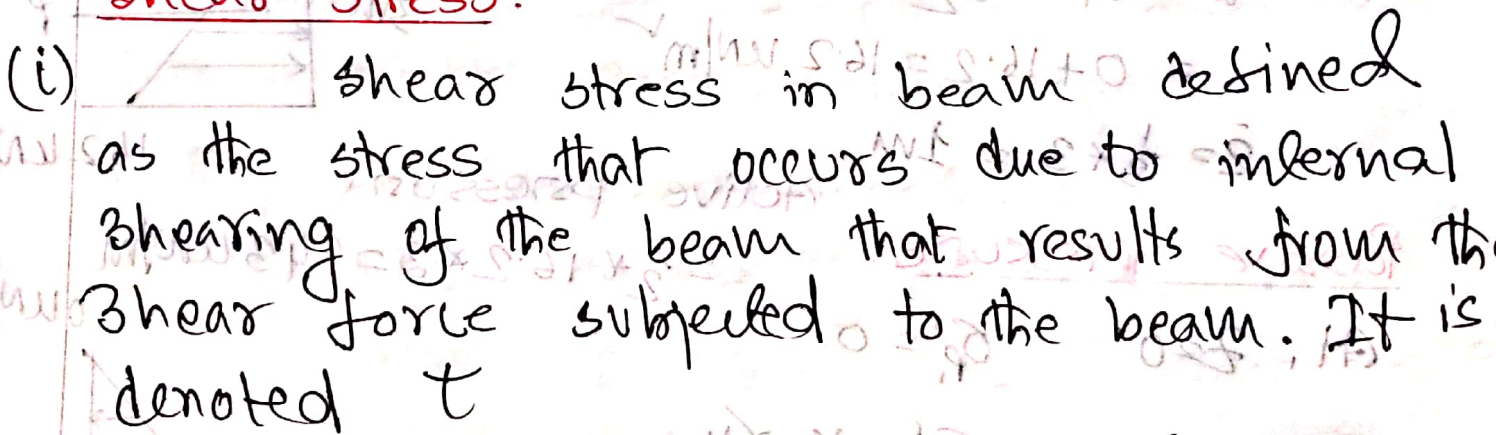 Shear Stress:
(i) shear stress in beam defined
as the stress that occurs due to internal
shearing of the beam that results from the
shear force subjected to the beam. It is
denoted t